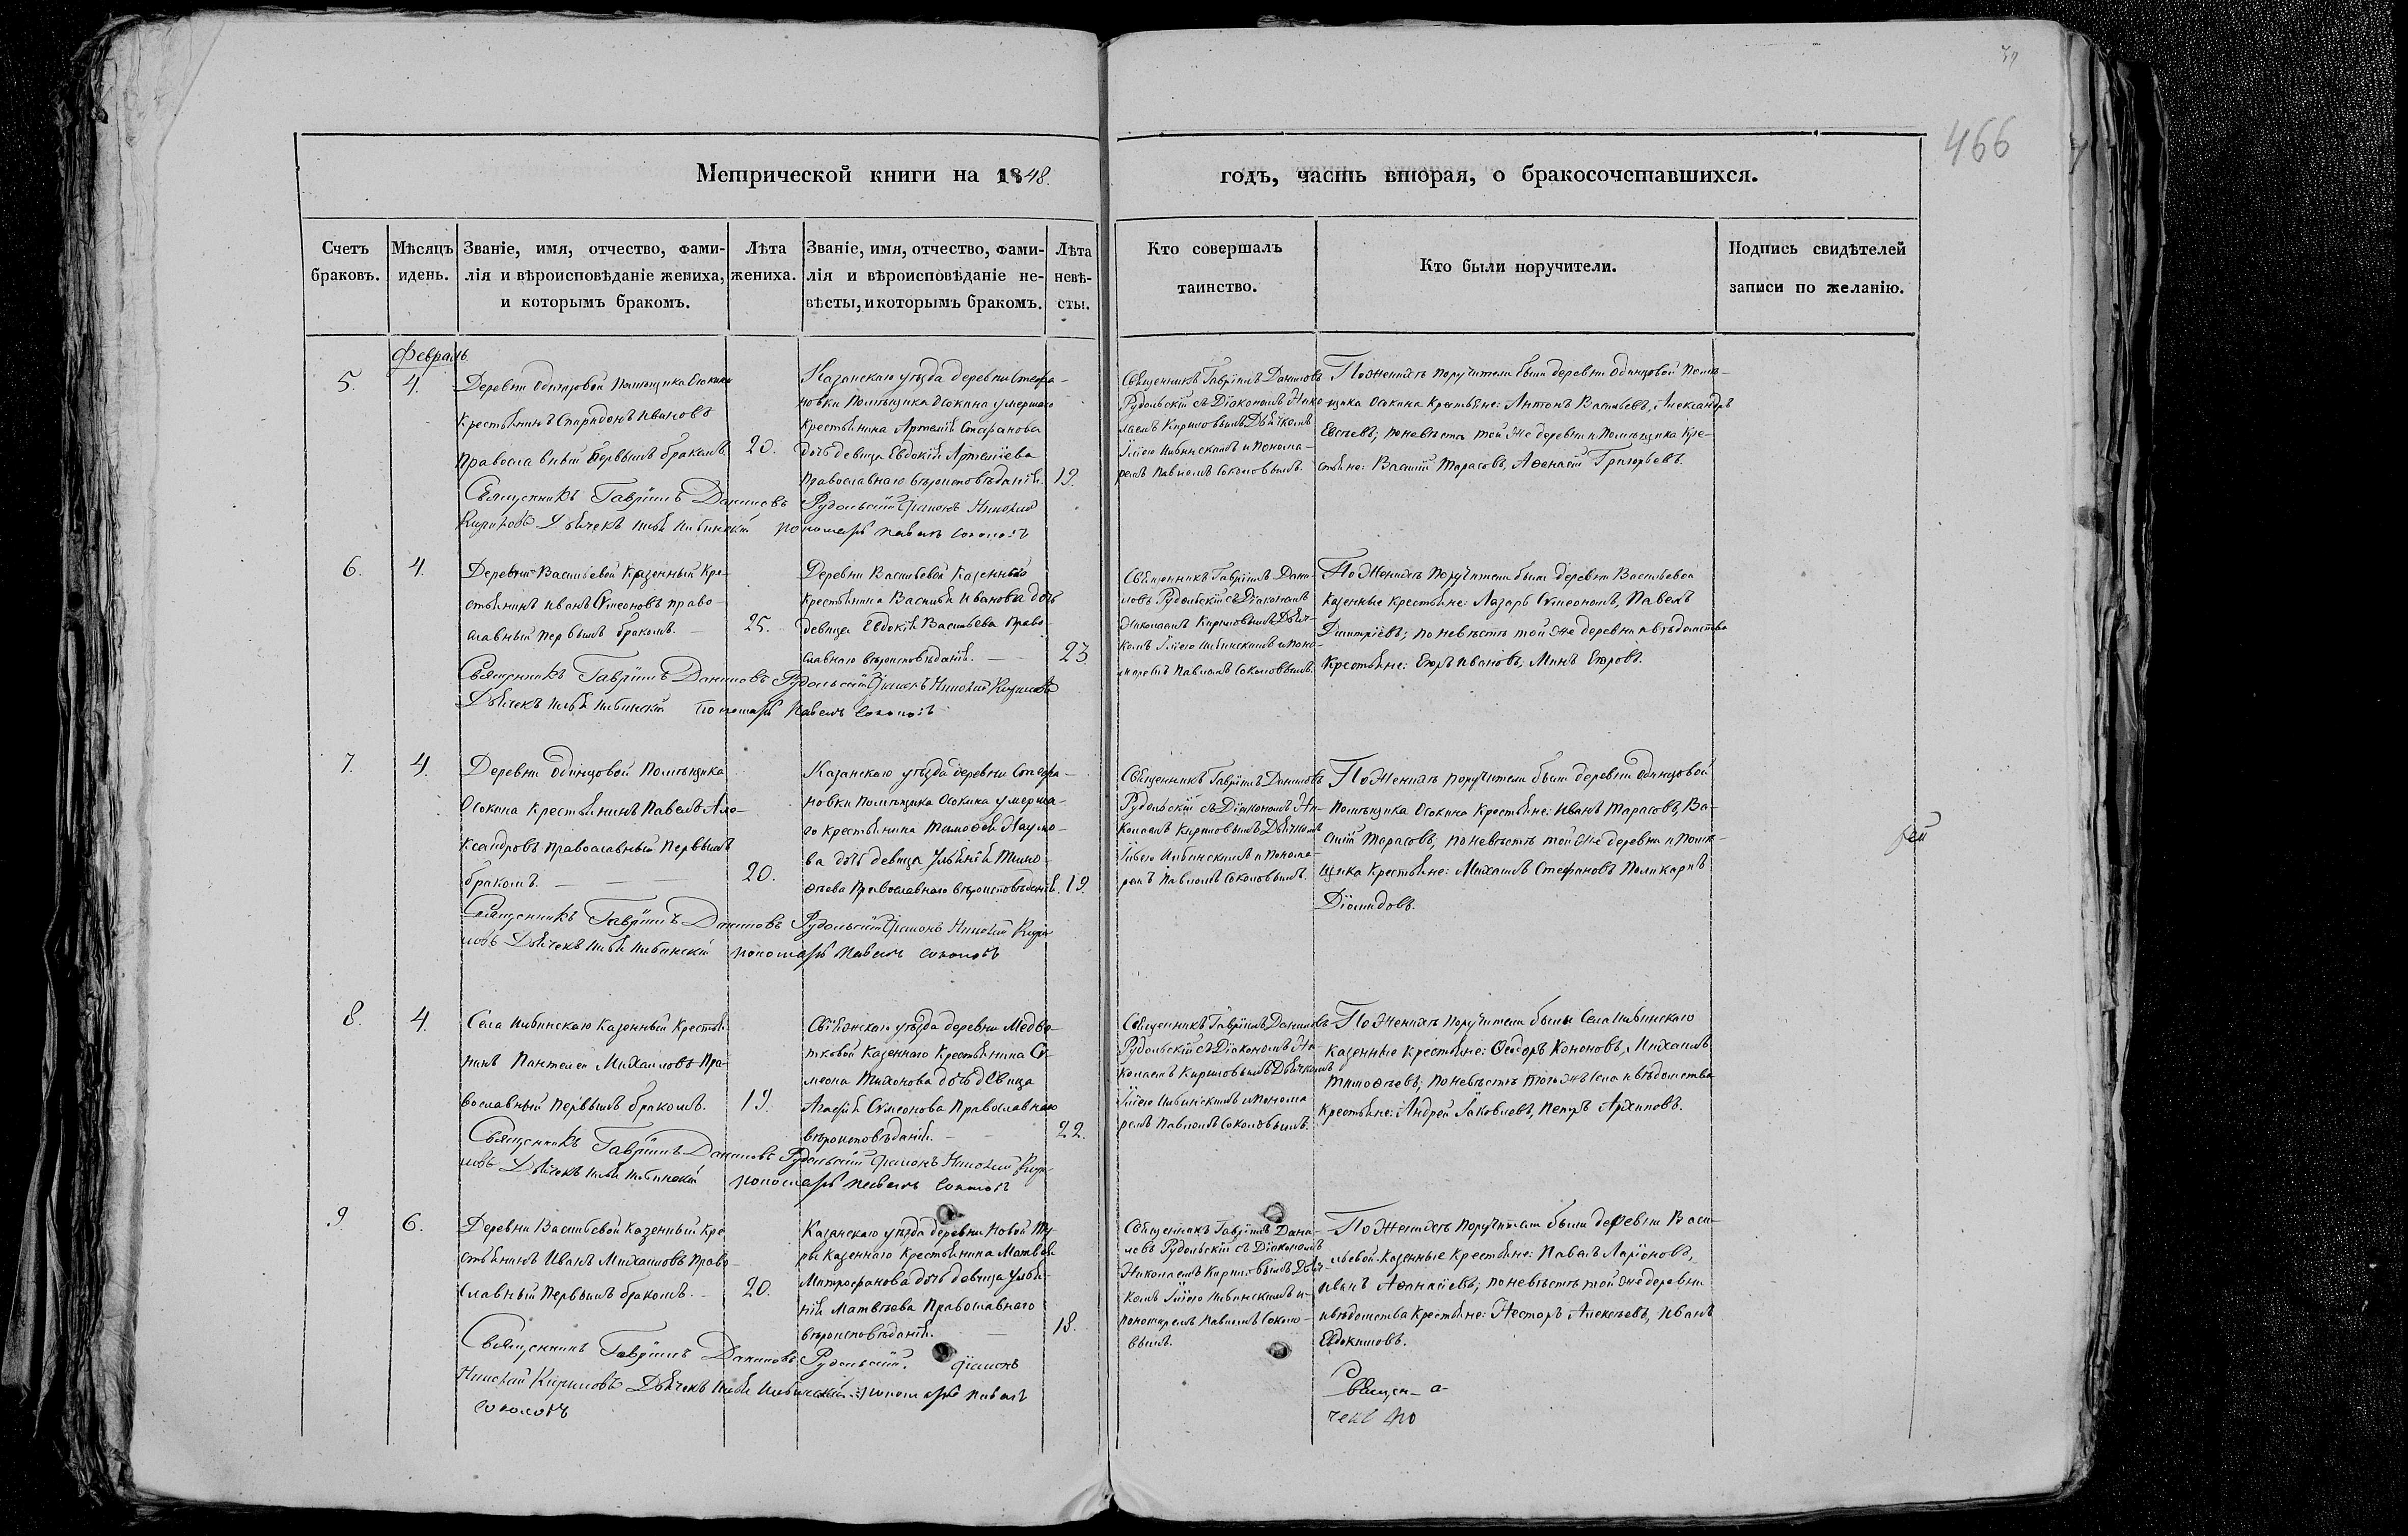 466
Метрической книги на 1848.
годъ, часть вторая, о бракосочетавшихся.
Счетъ браковъ.
Мѣсяцъ идень.
Званіе, имя, отчество, фами-
лія и вѣроисповѣданіе жениха,
и которымъ бракомъ.
Лѣта
жениха.
Званіе, имя, отчество, фами-
лія и вѣроисповѣданіе не-
вѣсты, и которымъ бракомъ.
Лѣта
невѣ-
сты.
Кто совершалъ
таинство.
Кто были поручители.
Подпись свидѣтелей
записи по желанію.
Февраль
5.
4.
Деревни Одинцовой Помѣщика Осокина
Крестьянинъ Спиридонъ Ивановъ
Православный Первымъ бракомъ.
20.
Казанскаго уѣзда деревни Стефа-
новки Помѣщика Осокина умершаго
Крестьянина Артемія Стефанова
дочь девица Евдокія Артеміева
Православнаго вѣроисповѣданія.
19.
Священникъ Гавріилъ Даниловъ
Рудольскій съ Діакономъ Нико-
лаемъ Кириловымъ Дьячкомъ
Ильею Шибинскимъ и Понома-
ремъ Павломъ Соколовымъ.
По Женихѣ поручители были деревни Одинцовой Помѣ-
щика Осокина Крестьяне: Антонъ Васильевъ, Александръ
Евсѣевъ; по невѣстѣ той же деревни и Помѣщика Кре-
стьяне: Василій Тарасовъ, Аѳанасій Григорьевъ.
Священникъ Гавріилъ Даниловъ Рудольскій Діаконъ Николай
Кириловъ Дьячекъ Илья Шибинскій пономарь Павелъ Соколовъ
6.
4.
Деревни Васильевой Казенный Кре-
стьянинъ Иванъ Сѵмеоновъ право-
славный первымъ бракомъ.
25.
Деревни Васильевой Казеннаго
Крестьянина Василья Иванова дочь
девица Евдокія Васильева Право-
славнаго вѣроисповѣданія.
23.
Священникъ Гавріилъ Дани-
ловъ Рудольскій съ Діакономъ
Николаемъ Кириловымъ Дьяч-
комъ Ильею Шибинскимъ и Поно-
маремъ Павломъ Соколовымъ.
По Женихѣ Поручители были деревни Васильевой
Казенные Крестьяне: Лазарь Сѵмеоновъ, Павелъ
Димитріевъ; по невѣстѣ той же деревни и вѣдомства
Крестьяне: Егоръ Ивановъ, Минъ Егоровъ.
Священникъ Гавріилъ Даниловъ Рудольскій Діаконъ Николай Кириловъ
Дьячекъ Илья Шибинскій Пономарь Павелъ Соколовъ
7.
4.
Деревни Одинцовой Помѣщика
Осокина Крестьянинъ Павелъ Але-
ксандровъ Православный Первымъ
бракомъ.
20.
Казанскаго уѣзда деревни Стефа-
новки Помѣщика Осокина умерша-
го Крестьянина Тимоѳея Наумо-
ва дочь девица Ульянія Тимо-
ѳѣева Православнаго вѣроисповѣданія.
19.
Священникъ Гавріилъ Даниловъ
Рудольскій съ Діакономъ Ни-
колаемъ Кириловымъ Дьячкомъ
Ильею Шибинскимъ и Понома-
ремъ Павломъ Соколовымъ.
По Женихѣ поручители были деревни Одинцовой
Помѣщика Осокина Крестьяне: Иванъ Тарасовъ, Ва-
силій Тарасовъ; по невѣстѣ той же деревни и Помѣ-
щика Крестьяне: Михаилъ Стефановъ Поликарпъ
Діомидовъ.
Священникъ Гавріилъ Даниловъ Рудольскій Діаконъ Николай Кири-
ловъ Дьячекъ Илья Шибинскій пономарь Павелъ Соколовъ
8.
4.
Села Шибинскаго Казенный Крестья-
нинъ Пантелей Михаиловъ Пра-
вославный первымъ бракомъ.
19.
Свіяжскаго уѣзда деревни Медве-
тковой Казеннаго Крестьянина Сѵ-
меона Тихонова дочь девица
Агафія Сѵмеонова Православнаго
вѣроисповѣданія.
22.
Священникъ Гавріилъ Даниловъ
Рудольскій съ Діакономъ Ни-
колаемъ Кириловымъ Дьячкомъ
Ильею Шибинскимъ и Понома
ремъ Павломъ Соколовымъ.
По Женихѣ Поручители были Села Шибинскаго
Казенные Крестьяне: Ѳедоръ Кононовъ, Михаилъ
Тимоѳѣевъ; по невѣстѣ того жъ Села и вѣдомства
Крестьяне: Андрей Іаковлевъ, Петръ Архиповъ.
Священникъ Гавріилъ Даниловъ Рудольскій Діаконъ Николай Кири-
ловъ Дьячекъ Илья Шибинскій пономарь Павелъ Соколовъ
9.
6.
Деревни Васильевой Казенный Кре
стьянинъ Иванъ Михаиловъ Право-
славный Первымъ бракомъ.
20.
Казанскаго уѣзда деревни Новой Ту-
ры Казеннаго Крестьянина Матвея
Митрофанова дочь девица Улья-
нія Матвѣева Православнаго
вѣроисповѣданія.
18.
Священникъ Гавріилъ Дани-
ловъ Рудольскій съ Діакономъ
Николаемъ Кириловымъ Дьяч-
комъ Ильею Шибинскимъ и
пономаремъ Павломъ Соколо-
вымъ.
По Женихѣ Поручители были деревни Васи-
льевой Казенные Крестьяне: Павелъ Ларіоновъ,
Иванъ Аѳанасіевъ; по невѣстѣ той же деревни
и вѣдомства Крестьяне: Несторъ Алексѣевъ, Иванъ
Евдокимовъ.
Священникъ Гавріилъ Даниловъ Рудольскій. Діаконъ
Николай Кириловъ Дьячекъ Илья Шибинскій пономарь Павелъ
Соколовъ